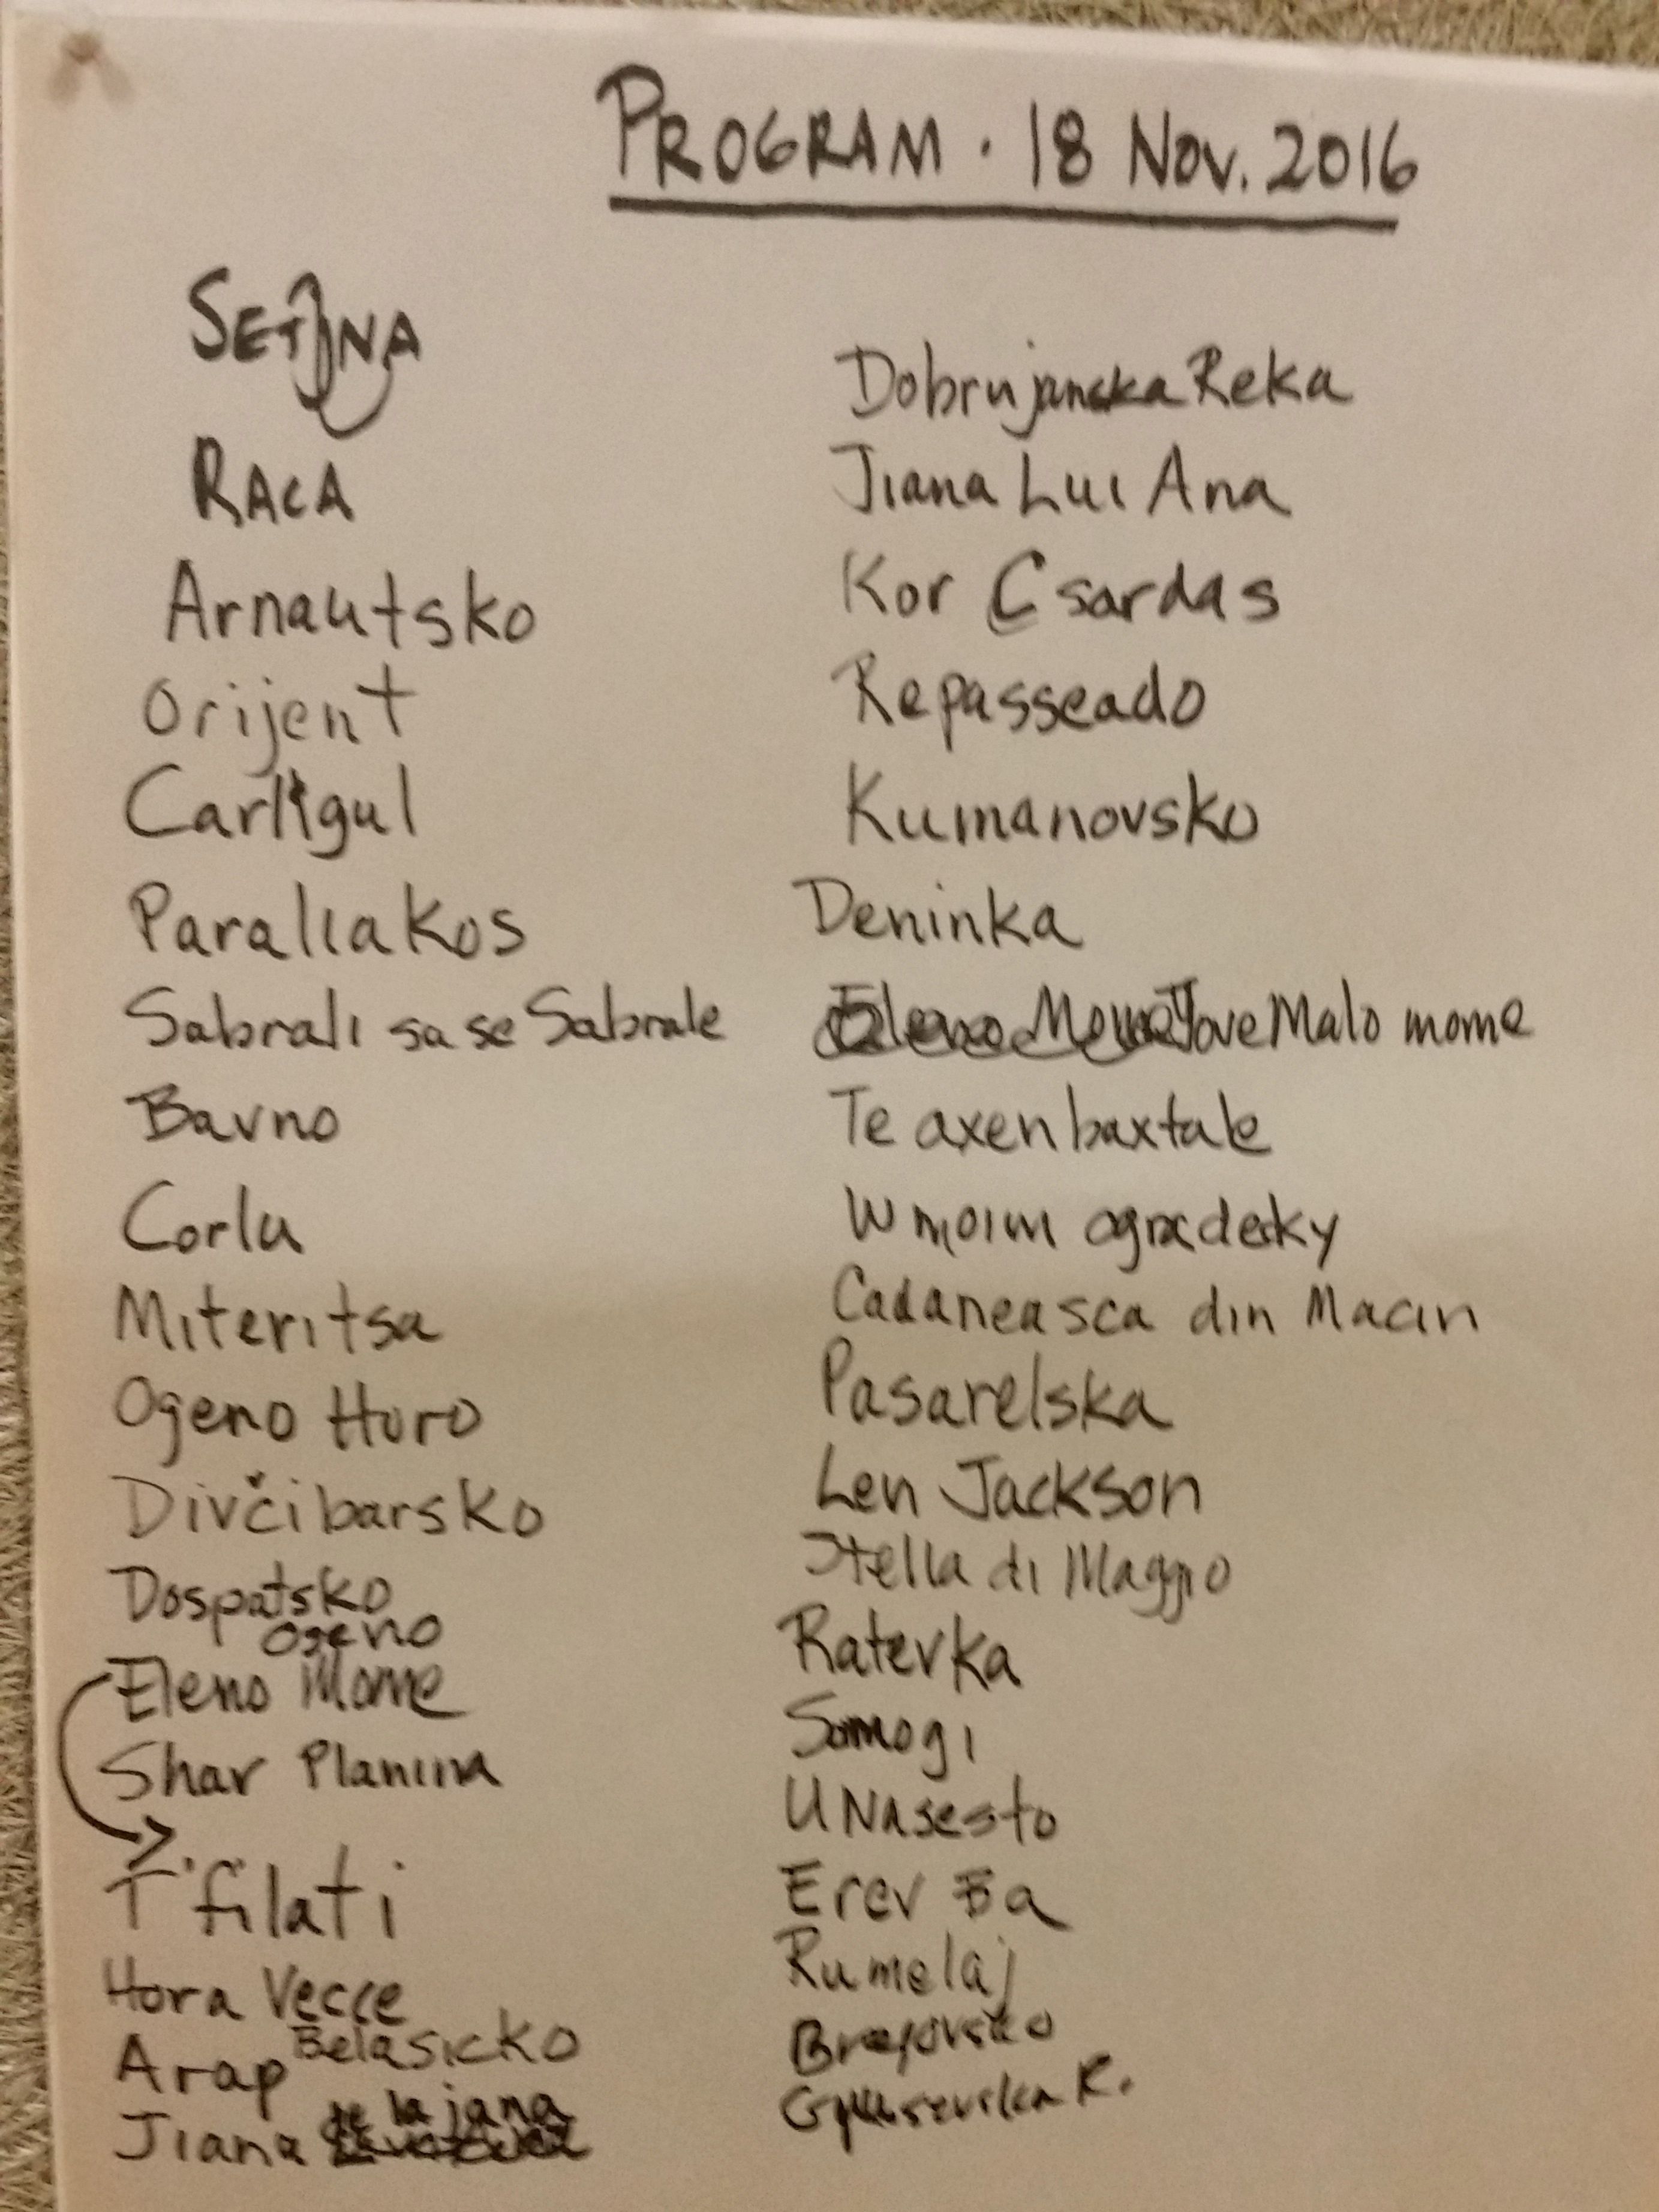 PROGRAM · 18 NOV. 2016
RACA
Arnautsko
Orijent
Carligul
Paraliakos
Sabrali sa se Sabrale
Bavno
Corlu
Miteritsa
Ogeno Horo
Divčibarsko
Dospatsko
ogeno
Eleno Mome
Shar Planina
T'filati
Hora Vecce
Arap Belasicko
Jiana de la jana
Dobrujanska Reka
Jiana Lui Ana
Kor Csardas
Repasseado
Kumanovsko
Deninka
Eleno Mome Jove Malo mome
Te axen baxtale
W moim ogradecky
Cadaneasca din Macin
Pasarelska
Len Jackson
Stella di Maggio
Ratevka
Somogi
U Nasesto
Erev Ba
Rumelaj
R.